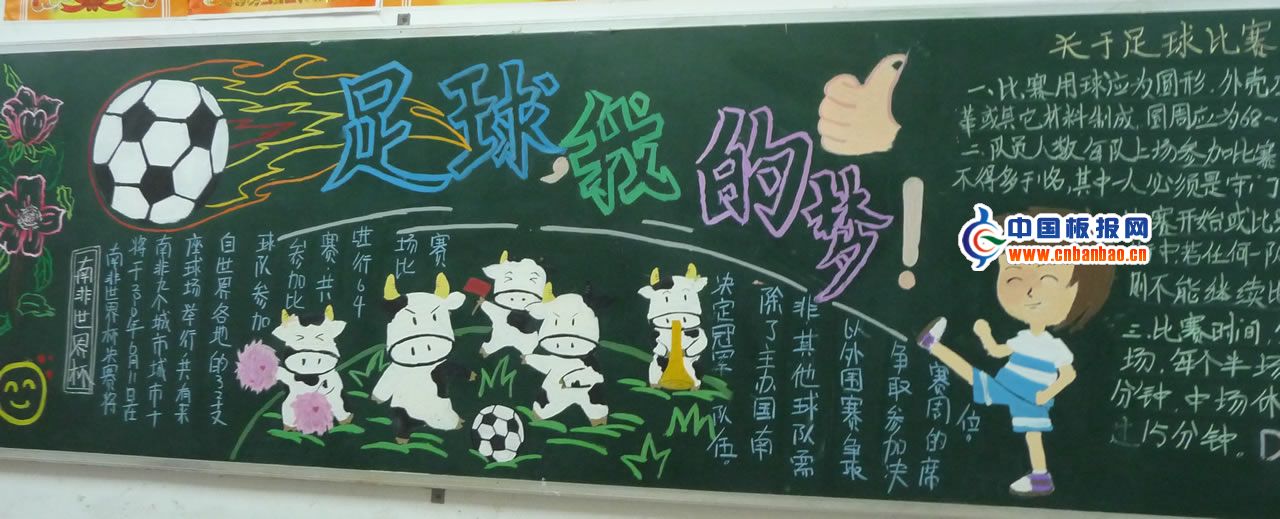 足球,我的梦!
南非世界杯
南非世界杯决赛将
将于2010年6月11日在
南非九个城市城市十
座球场举行共有来
自世界各地的32支
球队参加
参加比
赛共
进行64
场比
赛
决定冠军队伍。
除了主办国南
非其他球队需
以外围赛争取
争取参加决
赛周的席
位。
关于足球比赛
一、比赛用球应为圆形,外壳
革或其它材料制成,圆周应为68~
二、队员人数:每队上场参加比赛
不得多于 名,其中一人必须是守门
赛开始或比
中,若任何一队
则不能继续比
三、比赛时间:
场,每个半场
分钟,中场休
过15分钟。
中国板报网
www.cnbanbao.cn